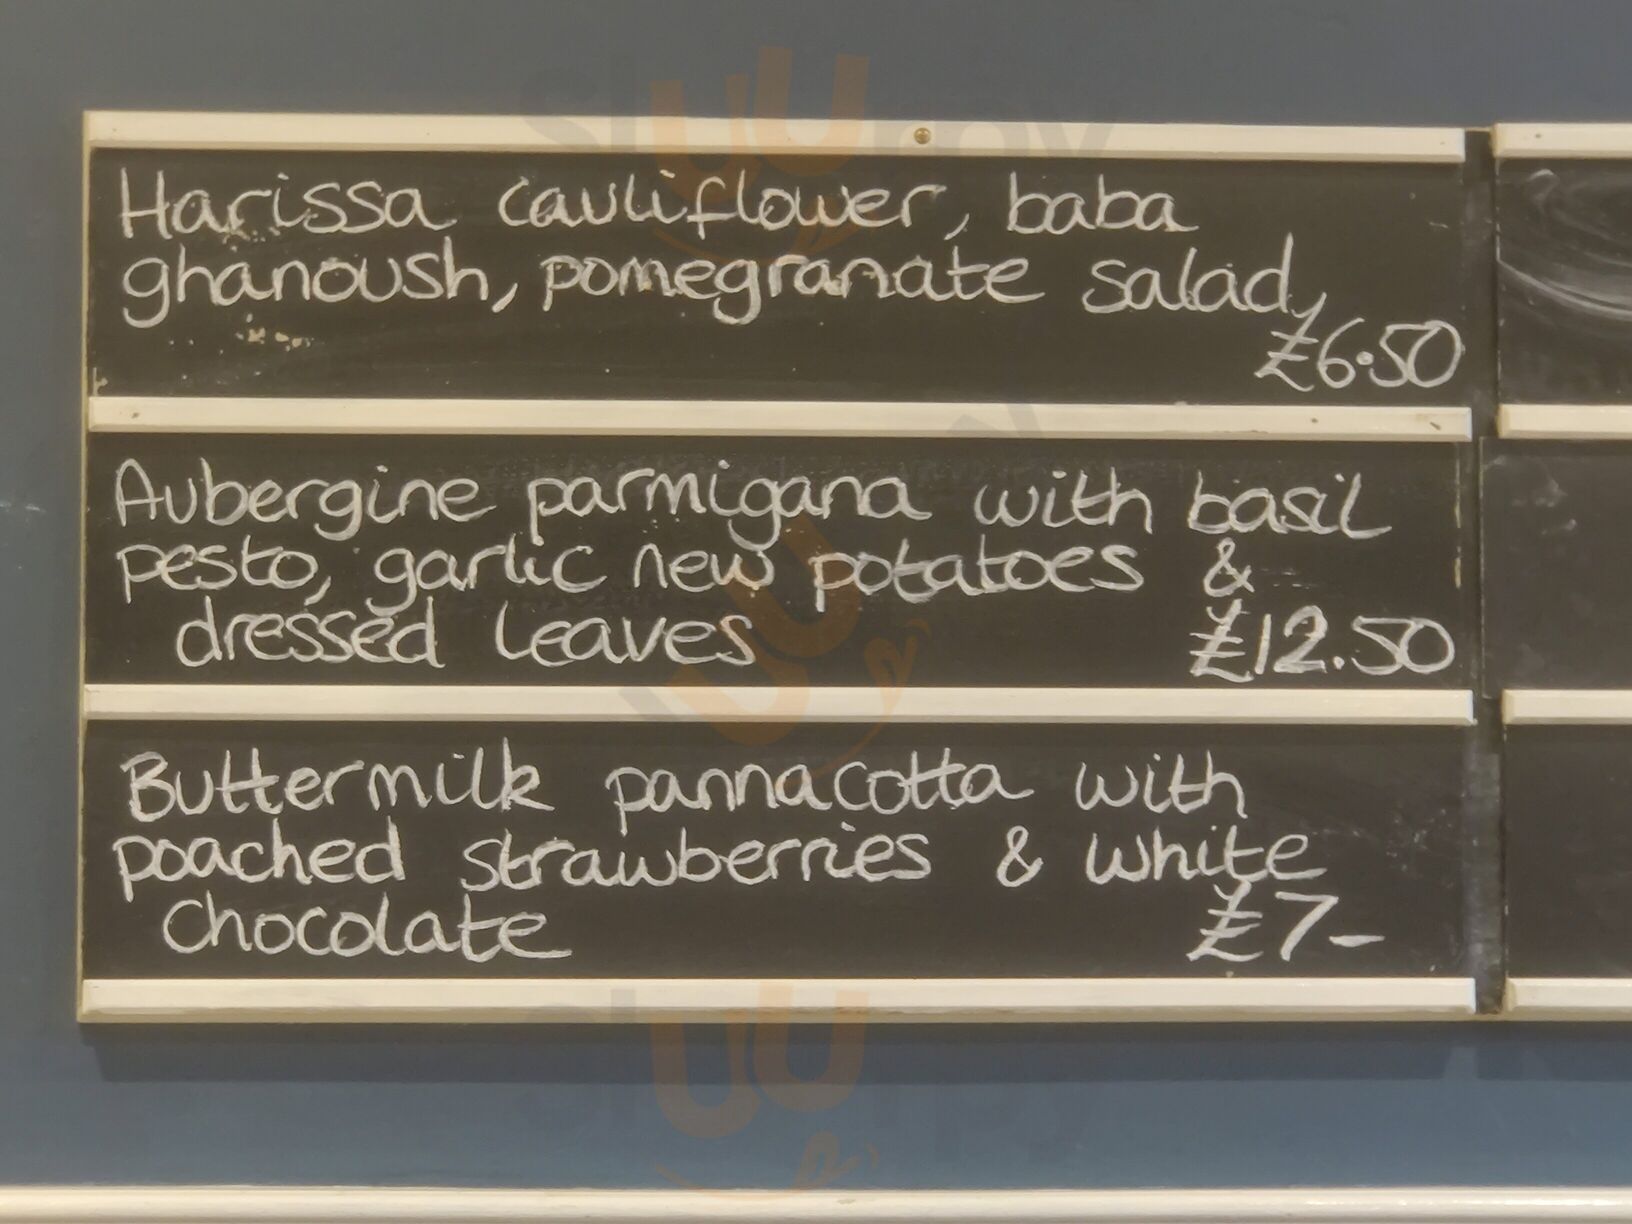 Harissa cauliflower, baba
ghanoush, pomegranate salad,
£6.50
Aubergine parmigana with basil
pesto, garlic new potatoes &
dressed leaves £12.50
Buttermilk pannacotta with
poached strawberries & white
chocolate £7-